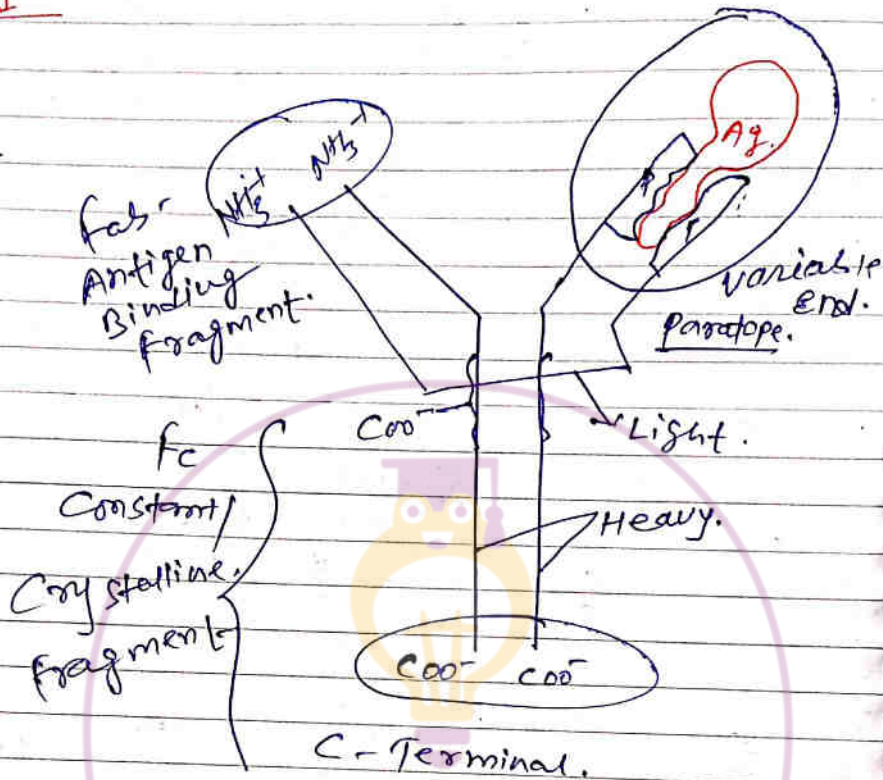 NH3+ NH3+
Fab-
Antigen
Binding
Fragment.
Ag.
P
P
Variable
End.
Paratope.
Coo-
Light.
Fc
Constant/
Crystalline.
Fragment
Heavy.
Coo- Coo-
C-Terminal.